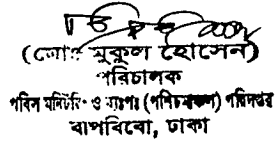 (মোঃ মুকুল হোসেন)
পরিচালক
পবিস মনিটরিং ও ব্যঃপঃ (পশ্চিমাঞ্চল) পরিদপ্তর
বাপবিবো, ঢাকা